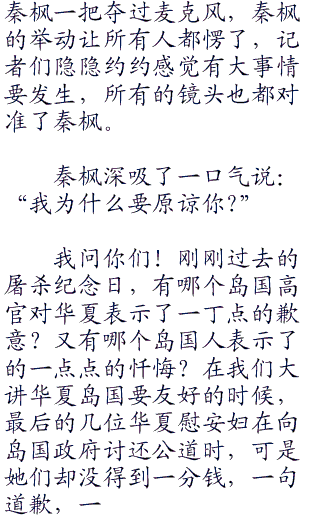 秦枫一把夺过麦克风，秦枫
的举动让所有人都愣了，记
者们隐隐约约感觉有大事情
要发生，所有的镜头也都对
准了秦枫。
秦枫深吸了一口气说：
“我为什么要原谅你？”
我问你们！刚刚过去的
屠杀纪念日，有哪个岛国高
官对华夏表示了一丁点的歉
意？又有哪个岛国人表示了
的一点点的忏悔？在我们大
讲华夏岛国要友好的时候，
最后的几位华夏慰安妇在向
岛国政府讨还公道时，可是
她们却没得到一分钱，一句
道歉，一